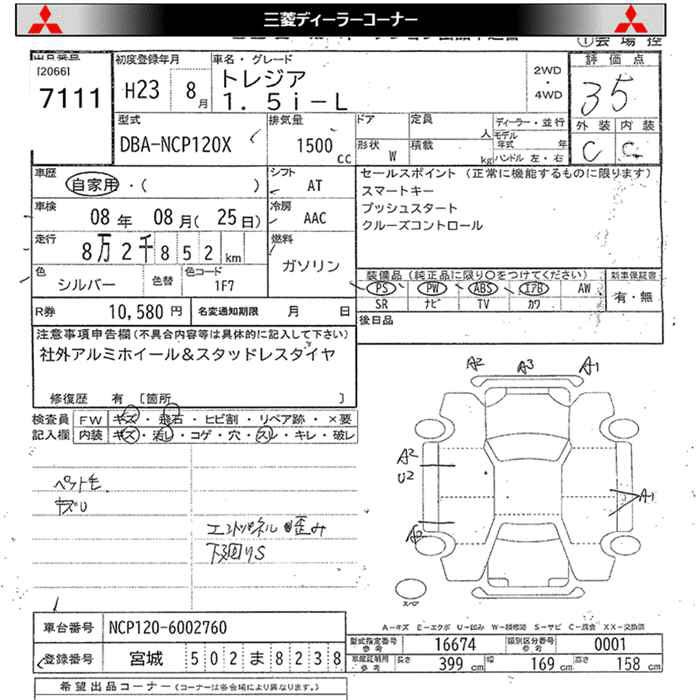 三菱ディーラーコーナー
①会場控
出品番号
[2066]
7111
初度登録年月
H23 8月
車名・グレード
トレジア
1.5i-L
2WD
・
4WD
評価点
35
外装 内装
C C
型式
DBA-NCP120X
排気量
1500 cc
ドア
定員 人
形状 W
積載 kg
ディーラー・並行
モデル年式 年
ハンドル 左・右
車歴
自家用・( )
シフト
AT
車検
08年 08月(25日)
冷房
AAC
走行
8万2千852km
燃料
ガソリン
色
シルバー
色替
色コード
1F7
セールスポイント (正常に機能するものに限ります)
スマートキー
プッシュスタート
クルーズコントロール
装備品 (純正品に限り○をつけてください)
PS PW ABS エアB AW
SR ナビ TV カワ
新車保証書
有・無
R券 10,580 円
名変通知期限 月 日
後日品
注意事項申告欄(不具合内容等は具体的に記入して下さい)
社外アルミホイール&スタッドレスタイヤ
修復歴 有 [箇所 ]
検査員記入欄
FW キズ・飛石・ヒビ割・リペア跡・×要
内装 キズ・汚レ・コゲ・穴・スレ・キレ・破レ
ペット毛
キズU
エンドパネル歪み
下廻りS
A2 A3 A1
A2
U2
A2
A1
スペア
A-キズ E-エクボ U-凹み W-補修跡 S-サビ C-腐食 XX-交換済
車台番号 NCP120-6002760
登録番号 宮城 502ま8238
型式指定番号 参考 16674
類別区分番号 参考 0001
車庫証明用 参考 長さ 399 cm 幅 169 cm 高さ 158 cm
希望出品コーナー (コーナーは各会場により異なります。)